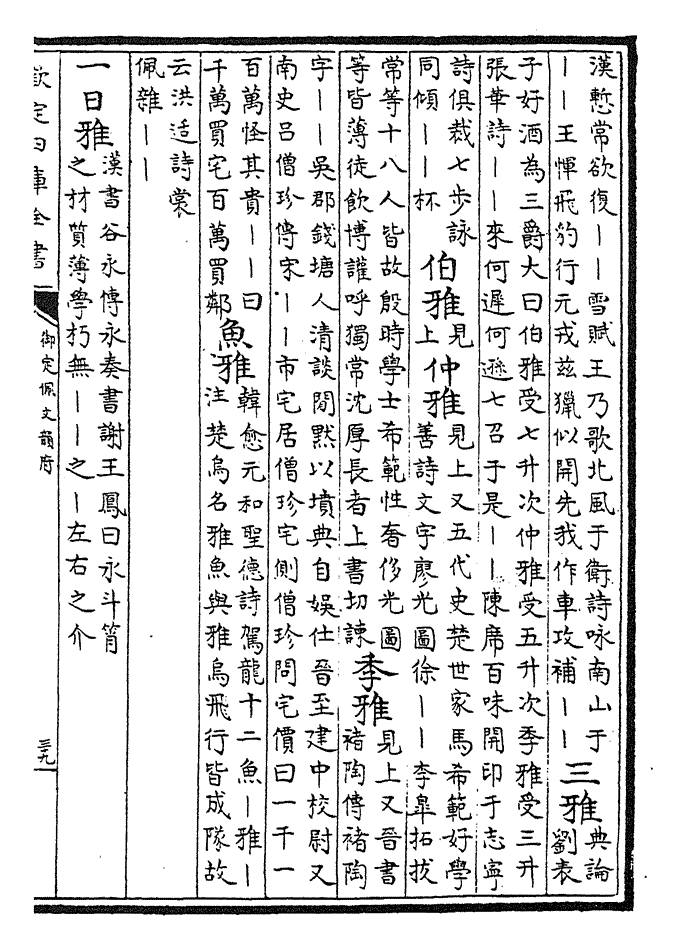 漢慙常欲復丨丨雪賦王乃歌北風于衛詩咏南山于
丨丨王惲飛豹行元戎茲獵似開先我作車攻補丨丨
三雅
典論
劉表
子好酒為三爵大曰伯雅受七升次仲雅受五升次季雅受三升
張華詩丨丨來何遲何遜七召于是丨丨陳席百味開印于志寧
詩俱裁七步詠
同傾丨丨杯
伯雅
見
上
仲雅
見上又五代史楚世家馬希範好學
善詩文字廖光圖徐丨丨李臯拓拔
常等十八人皆故殷時學士希範性奢侈光圖
等皆薄徒飲博讙呼獨常沈厚長者上書切諫
季雅
見上又晉書
褚陶傳褚陶
字丨丨吳郡錢塘人清談閒黙以墳典自娛仕晉至建中校尉又
南史吕僧珍傳宋丨丨市宅居僧珍宅側僧珍問宅價曰一千一
百萬怪其貴丨丨曰
千萬買宅百萬買鄰
魚雅
韓愈元和聖德詩駕龍十二魚丨雅丨
注楚烏名雅魚與雅烏飛行皆成隊故
云洪适詩裳
佩雜丨丨
一日雅
漢書谷永傳永奏書謝王鳳曰永斗筲
之材質薄學朽無丨丨之丨左右之介
欽定四庫全書
御定佩文韻府
三九